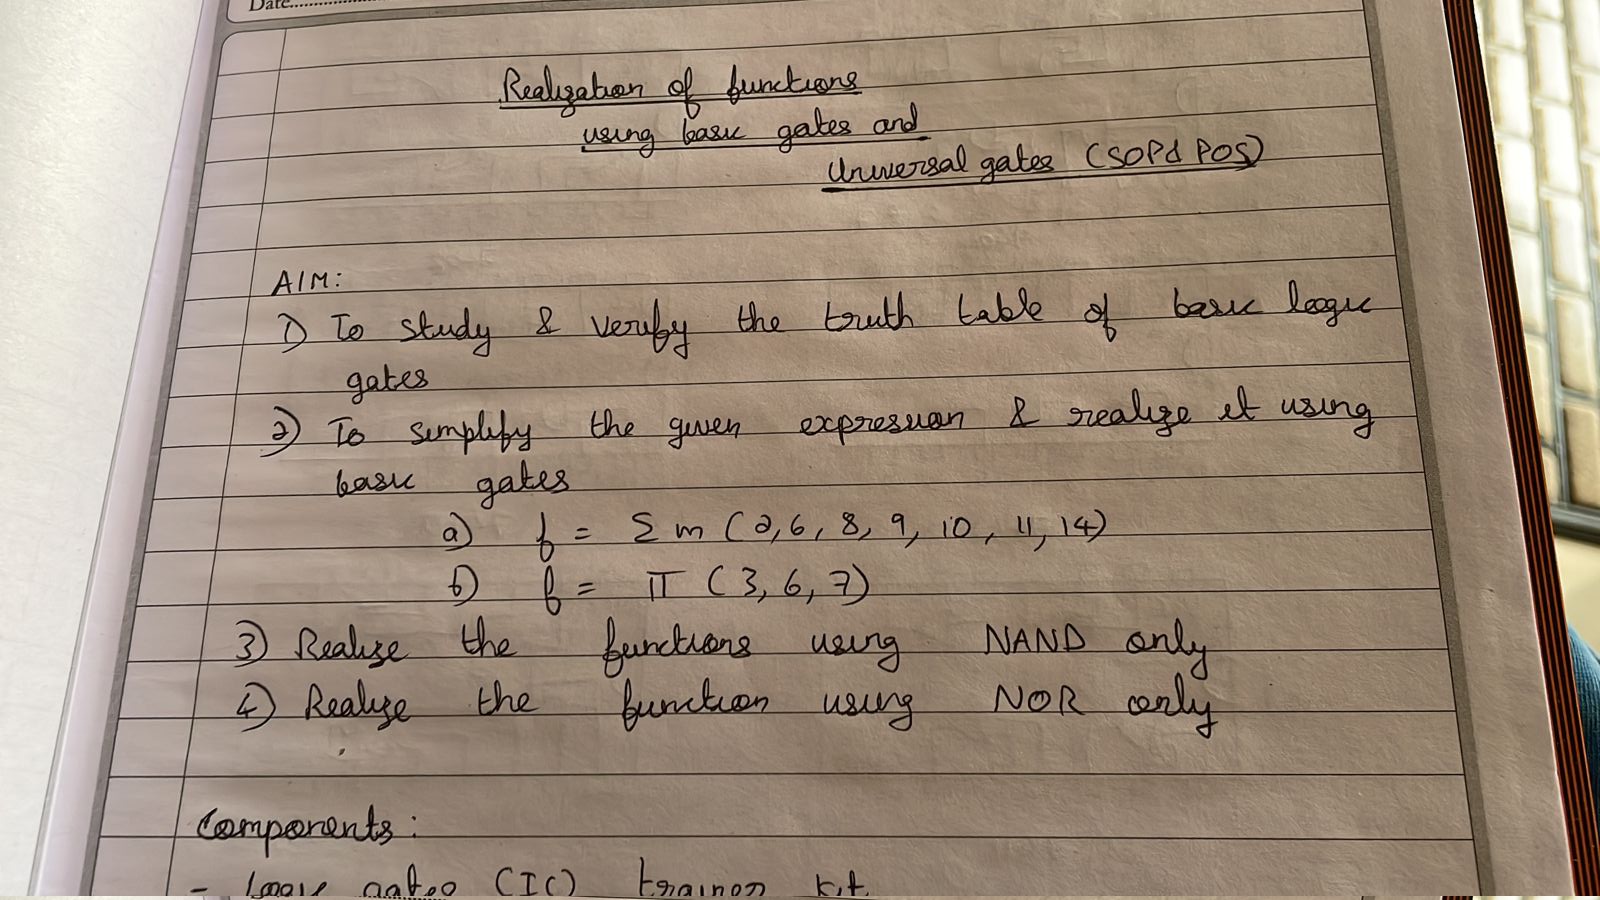 Date..............
Realization of functions
using basic gates and
Universal gates (SOP & POS)
AIM:
1) To study & verify the truth table of basic logic
gates
2) To simplify the given expression & realize it using
basic gates
a) f = Σ m (2,6, 8, 9, 10, 11, 14)
b) f = π (3, 6, 7)
3) Realize the functions using NAND only
4) Realize the function using NOR only
Components:
- Logic gates (IC) trainer kit